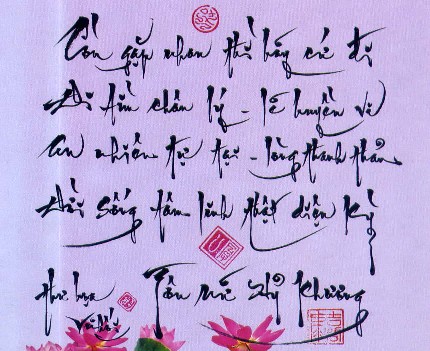 Còn gặp nhau thì hãy cứ đi
Đi tìm chân lý - lẽ huyền vi
An nhiên tự tại - lòng thanh thản
Đời sống tâm linh thật diệu kỳ
Thư họa
Tôn Nữ Hỷ Khương